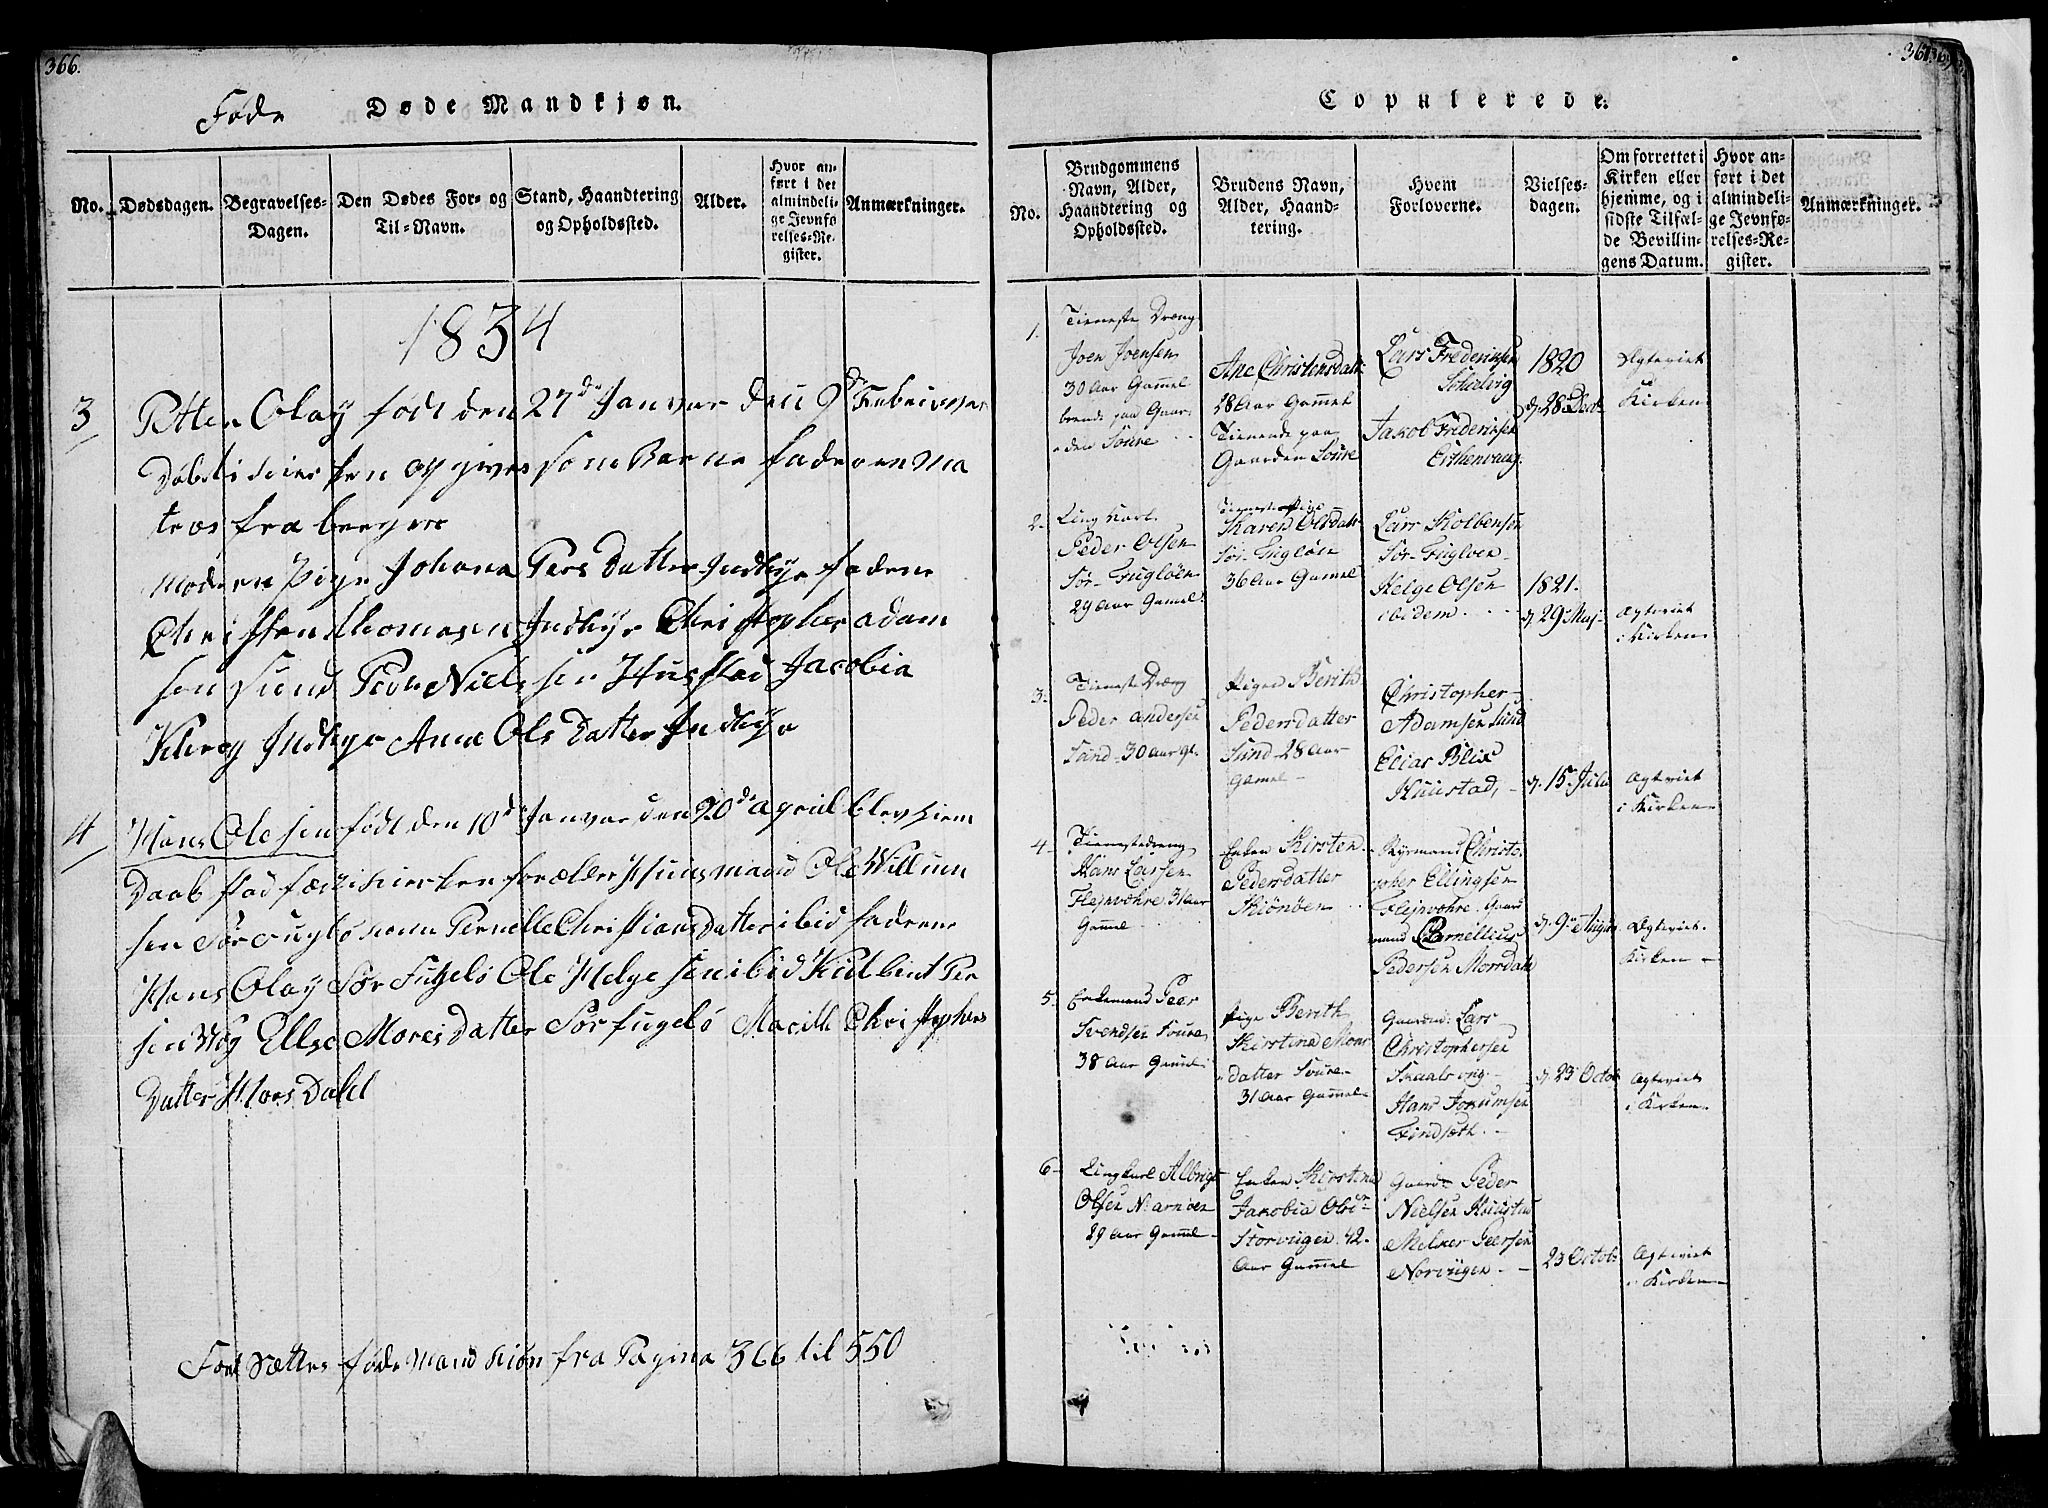 366.
Føde Døde Mandkjøn.
No.
Dødsdagen.
Begravelses-
Dagen.
Den Dødes For- og
Til-Navn.
Stand, Haandtering
og Opholdssted.
Alder.
Hvor an-
ført i det
almindeli-
ge Jevnfø-
relses-Re-
gister.
Anmærkninger.
1834
3 Petter Olay født den 27de Januar den 9de Februar
Døbt i kierken opgives som Barne fader en Ma
tros fra bergen
Moder en Pige Johana Pers Datter Indhye fadere
Christen Thomasen Indhye Christopher adam
sen Sund Peder Nielsen Husstad Jacobia
Indhye Ane Ols Datter Indhye
4 Hans Olesen født den 10de Januar den 20de april blev hiem
Daab stadfæst i kierken forældre Huusmand Ole Willum
sen Sør Fuglø kone Pernelle Christians Datter ibid fadere
Hans Olay Sør Fugelø Ole Helgesen ibid Kield Per
sen Elsse Mons Datter Sør fugelø Christophers
Datter Mors Dahl
Fort Sættes føde Mand kiøn fra Pagina 366 til 550
367
Copulerede.
No.
Brudgommens
Navn, Alder,
Haandtering og
Opholdssted.
Brudens Navn,
Alder, Haand-
tering.
Hvem
Forloverne.
Vielses-
dagen.
Om forrettet i
Kirken eller
hjemme, og i
sidste Tilfæl-
de Bevillin-
gens Datum.
Hvor an-
ført i det
almindeli-
ge Jevnfø-
relses-Re-
gister.
Anmærkninger.
1. Tieneste Dræng
Joen Joensen
30 Aar Gammel
boende paa Gaar-
den Soure
Ane Christensdatt:
28 Aar Gammel
Tienende paa
Gaarden Soure
Lars Frederiksen
Jakob Frederiksen
1820
d. 28 Decb.
Ægteviet
Kirken
2. Ung Karl
Peder Olsen
Sør-Fugløen
29 Aar Gamel.
Tieneste Pige
Karen Olsdatt:
Sør-Fugløen
36 Aar Gamel
Lars Kolbensen
Sør-Fugløen
Helge Olsen
ibidem
1821.
d. 29 Maj
Ægteviet
i Kirken
3. Tieneste Dræng
Peder Andersen
Sund - 30 Aar gl.
Pigen Berith
Pedersdatter
Sund - 28 Aar
Gamel -
Christopher
Adamsen Sund
Elias Blix
Huustad,
d. 15 Julii
Ægteviet
i Kirken
4. Tienestedreng
Hans Larsen
Flejnvohre 31 Aar
Gammel
Enken Kirsten
Pedersdatter
Christo-
pher Ellingsen
Flejnvohre. Gaard
mand Cornellius
Pedersen Morsdahl
d. 9de Augus
Ægteviet
Kirken -
5. Enkemand Peer
Svendsen Soure
38 Aar Gamel
Pige Berith
Kirstina Mons
datter Soure
31 Aar Gammel
Gaardm: Lars
Christophersen
Hans Jokumsen
Findsæth.
d. 23 Octob
Ægteviet
i Kirken
6 Ungkarl Albrigt
Olsen
29 Aar Gammel
Enken Kirstina
Jakobia Olsdr
Storvigen. 42
Aar Gammel
Gaardm Peder
Nielsen Huustad
Melker Peersen
Norvigen.
23 Octob
Ægteviet
i Kirken